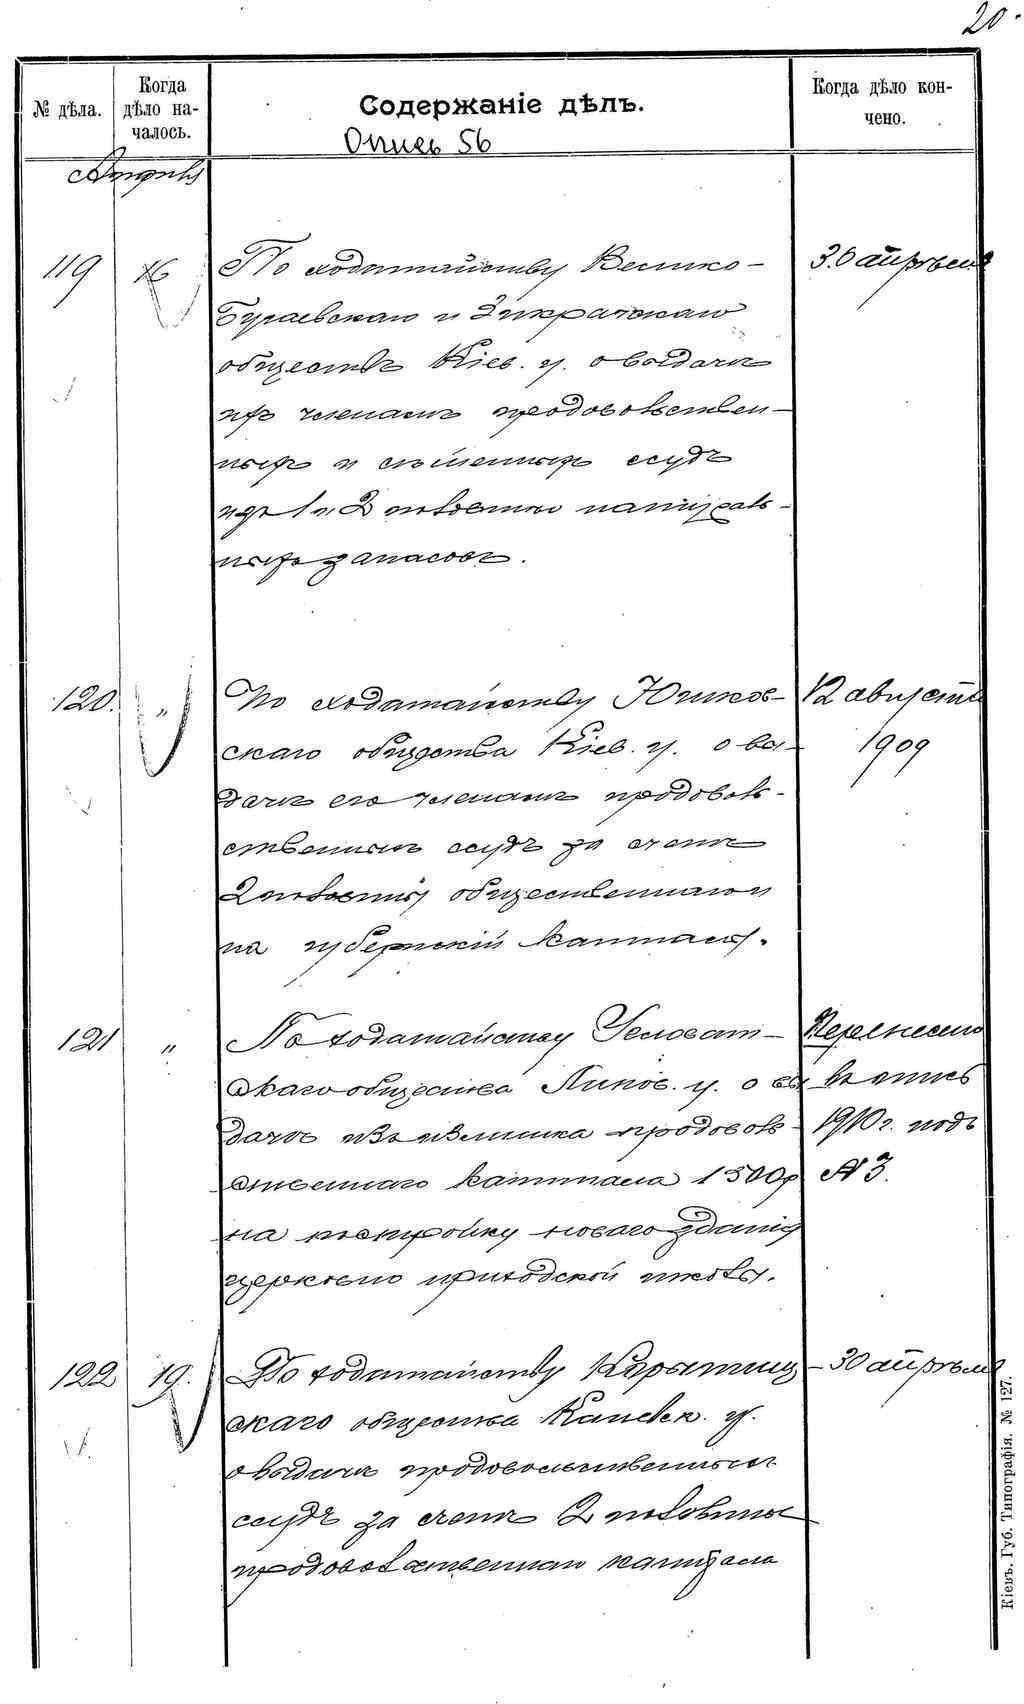 20.
№ дѣла.
Когда дѣло на-
чалось.
Содержаніе дѣлъ.
Когда дѣло кон-
чено.
Опись 56
119
16
По ходатайству Велико-
Бугаевскаго и
обществъ Кіев. у. о выдачѣ
ихъ членамъ продовольствен-
ныхъ и сѣменныхъ ссудъ
изъ 1 и 2 половины натураль-
ныхъ запасовъ.
30 апрѣля
120.
"
По ходатайству Юшков-
скаго общества Кіев. у. о вы-
дачѣ его членамъ продоволь-
ственныхъ ссудъ за счетъ
2 половины общественнаго
на губернскій капиталъ.
12 августа
1909
121
"
По ходатайству
скаго общества Липов. у. о вы
дачѣ изъ излишка продоволь-
ственнаго капитала 1500р
на постройку новаго зданія
церковно приходской школы.
Перенесено
въ опись
1910 г. подъ
№ 3.
122
19.
По ходатайству
скаго общества Каневск. у.
о выдачѣ продовольственныхъ
ссудъ за счетъ 2 половины
продовольственнаго капитала
30 апрѣля
Кіевъ. Губ. Типографія. № 127.